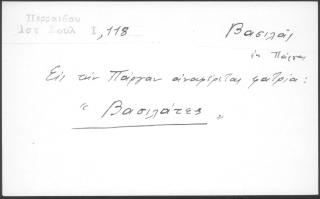 Περραιβου
Ιστ Σουλ Ι, 118
Βασιλάς
ἐν Πάργᾳ
Εἰς τὴν Πάργαν ἀναφέρεται φατρία:
" Βασιλάτες "